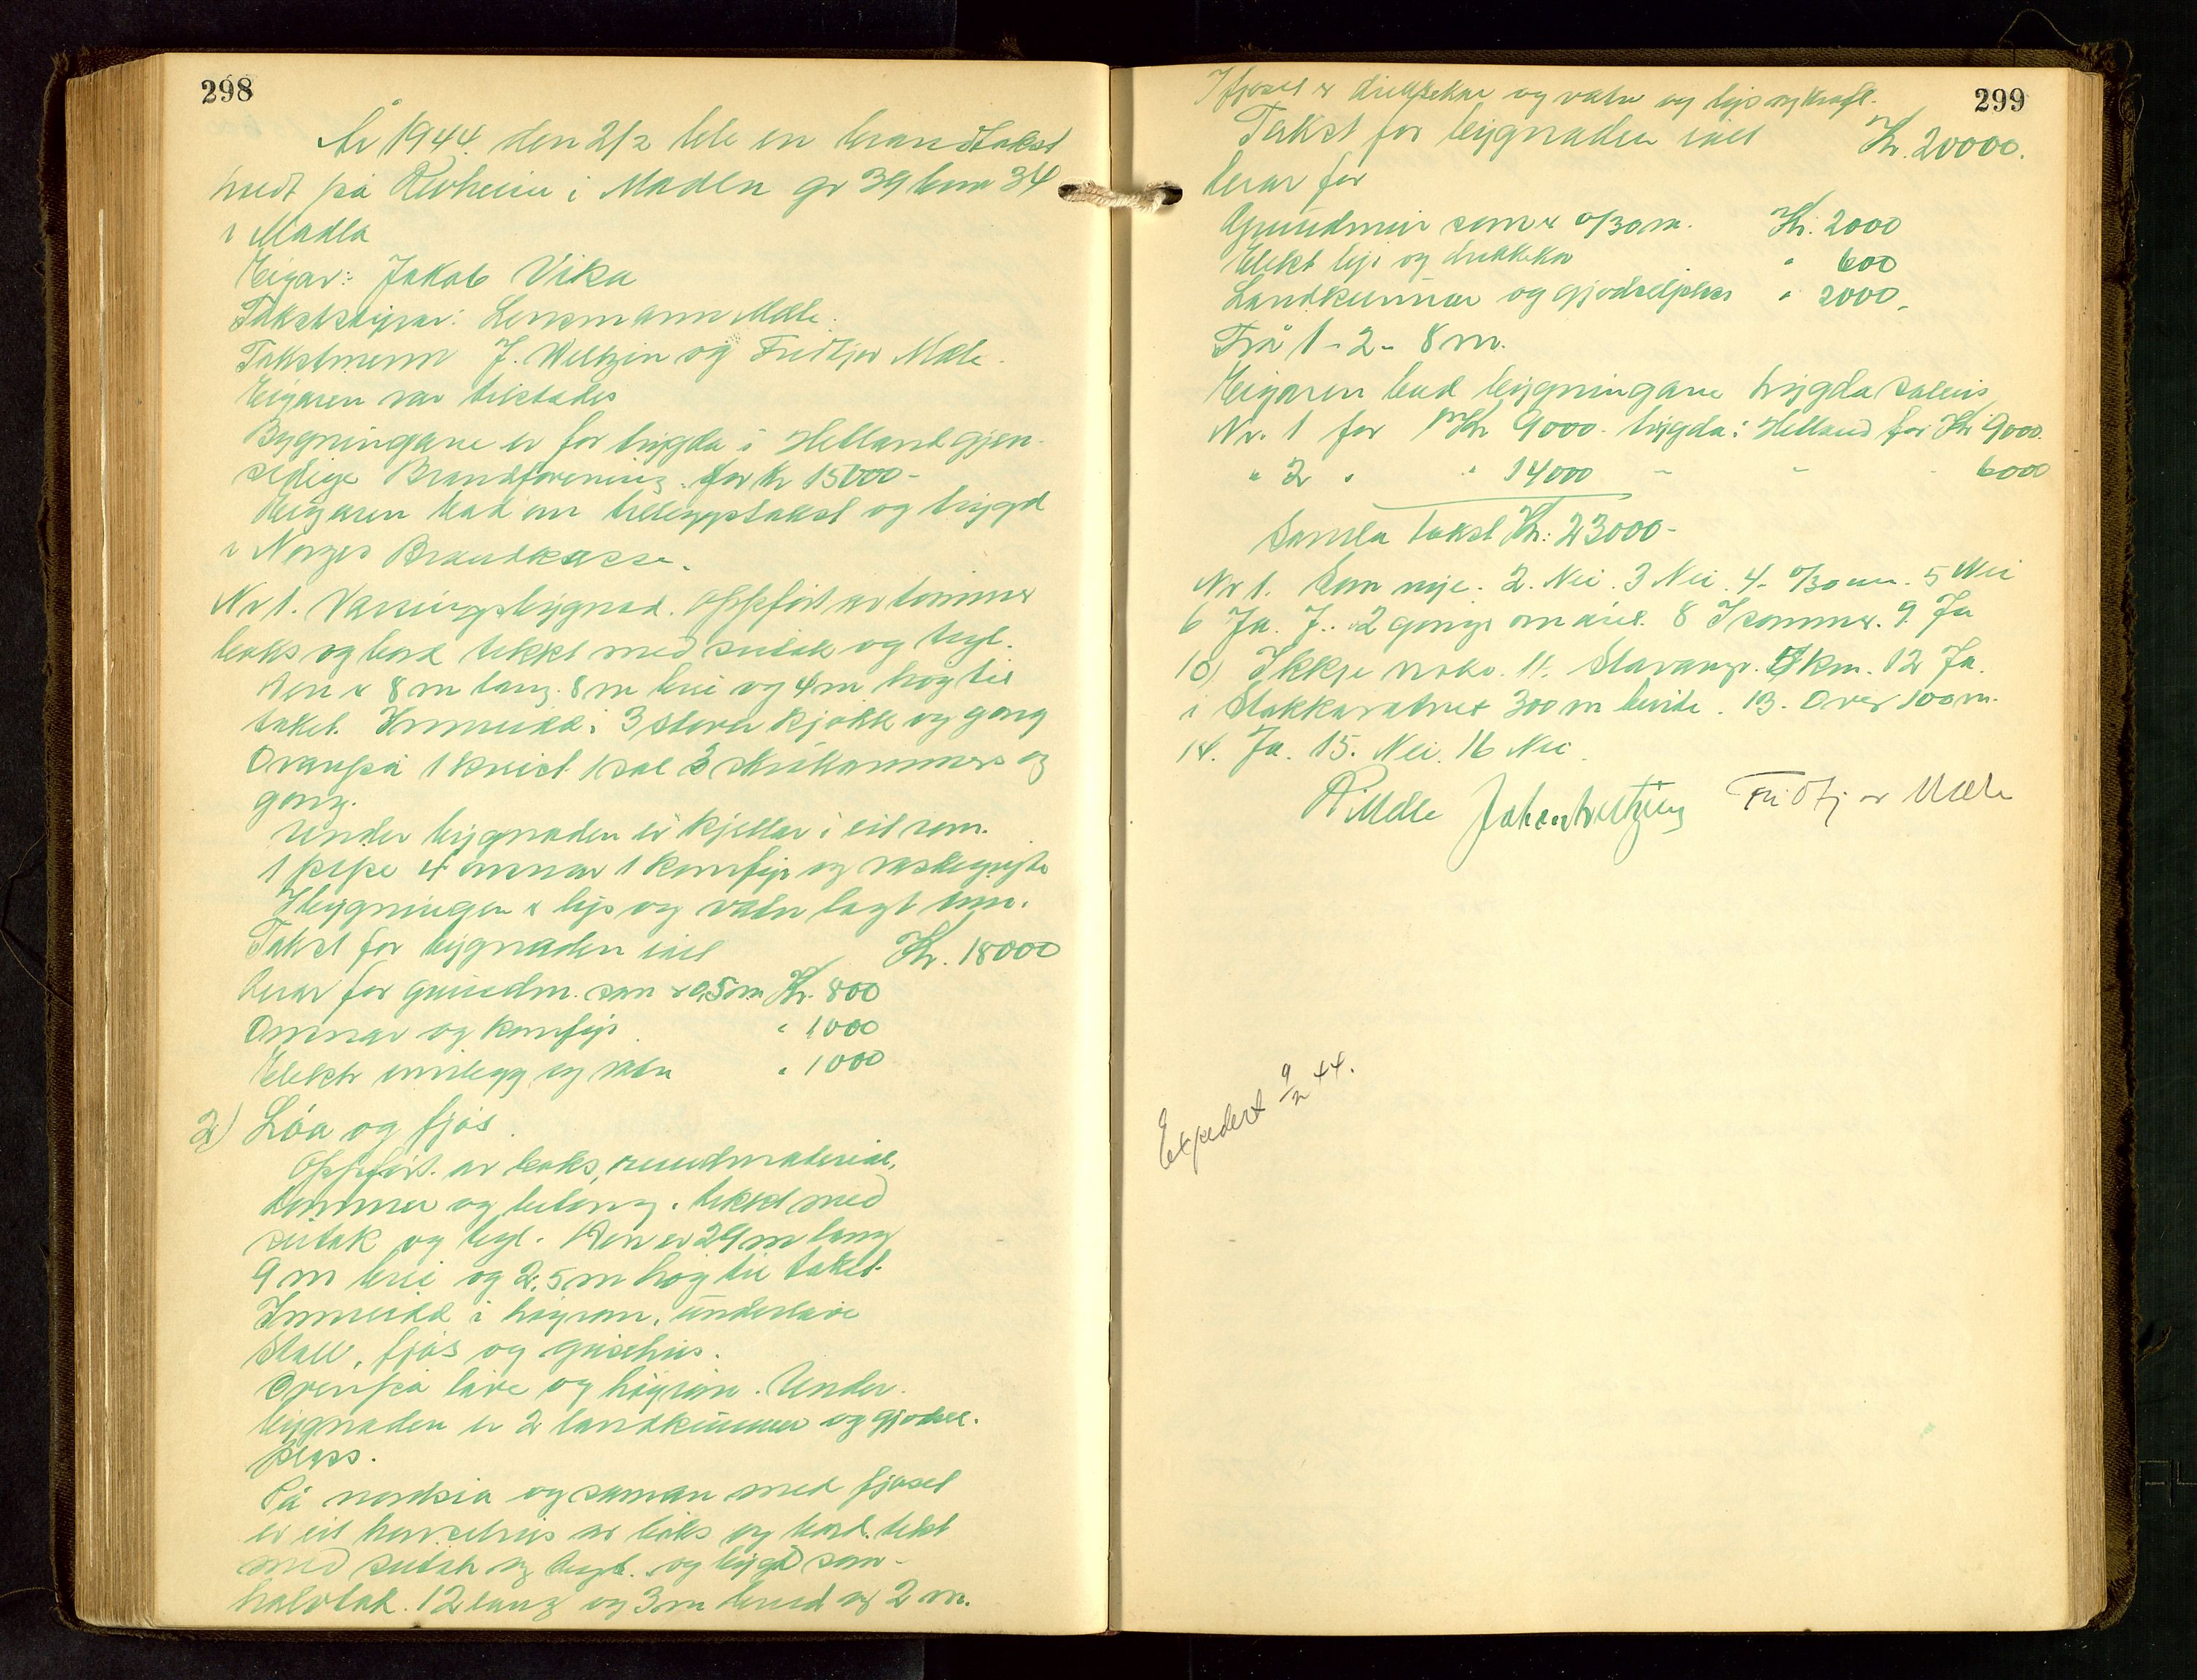 298
År 1944 den 2/2 ble en brandtakst
heldt på Revheim i Madla gr 39 bnr 34
i Madla
Eigar: Jakob Vika
Takststyrar: Lensmann Mæle.
Takstmenn J. Weltzin og Fridtjov Mæle.
Eigaren var tilstades
Bygningane er før trygda i Hetland gjen-
sidige Brandforening for kr 15000-
Eigaren bad om tilleggstakst og trygd
i Norges Brandkasse.
Nr 1. Vaaningsbygnad. Oppført av tømmer
boks og bord tekkt med sutak og tegl.
Den er 8 m lang. 8 m brei og 4 m høg til
taket. Innreidd i 3 stover kjøkk og gang
Ovanpå 1 kvist 1 sal 3 skråkammers og
gang.
Under bygnaden er kjellar i eit rom.
1 pipe 4 omnar 1 komfyr og vaskegryte
I bygningen er lys og vatn lagt inn.
Takst for bygnaden ialt Kr. 18000
Derav for grundm. som er 0,50 m Kr. 800
Omnar og komfyr " 1000
Elektr innlegg og vatn " 1000
2) Löa og fjös.
Oppført av boks, rundmateriale,
tømmer og betong. tekkt med
sutak og tegl. Den er 29 m lang
9 m brei og 2,5 m høg til taket.
Innreidd i høyrom, underlave
Stall, fjøs og grisehus.
Ovenpå lave og høyrom. Under
bygnaden er 2 landkummer og gjødsel-
plass.
På nordsia og saman med fjøset
er eit hønsehus av boks og bord. tekt
med sutak og tegl. og bygd som
halvtak. 12 lang og 3 m breid og 2 m.
299
I fjøset er drikkekar og vatn og lys og kraft.
Takst for bygnaden ialt Kr. 20000.
derav for
Grundmur som er 0/30 m. Kr. 2000
Elekt lys og drikkekar " 600
Landkummar og gjødselplass " 2000.
Frå 1 - 2 - 8 m.
Eigaren bad bygningane trygda saleis
Nr. 1 for Kr 9000- trygda i Hetland for Kr 9000.
" 2 " " 14000 - - - 6000
Samla takst Kr: 23000-
Nr 1. Som nye. 2. Nei. 3 Nei. 4. 0/30 cm. 5 Nei
6 Ja. 7. 2 gongr om året. 8 I sommer. 9. Ja
10) Ikkje noko. 11. Stavanger. 5 km. 12 Ja.
i Stokkavatnet 300 m breite. 13. Over 100 m.
14. Ja. 15. Nei. 16 Nei.
R Mæle Johan Weltzin Fridtjov Mæle
Expedert 9/2 44.